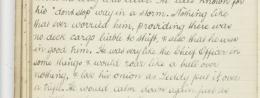 his "don't stop" way in a storm. Nothing like
that ever worried him, providing there was
no deck cargo liable to shift, & also that he was
in good trim. He was very like the Chief Officer in
some things & would roar like a bull over
nothing, & lose his onion as Teddy put it over
a rope. He would calm down again just as